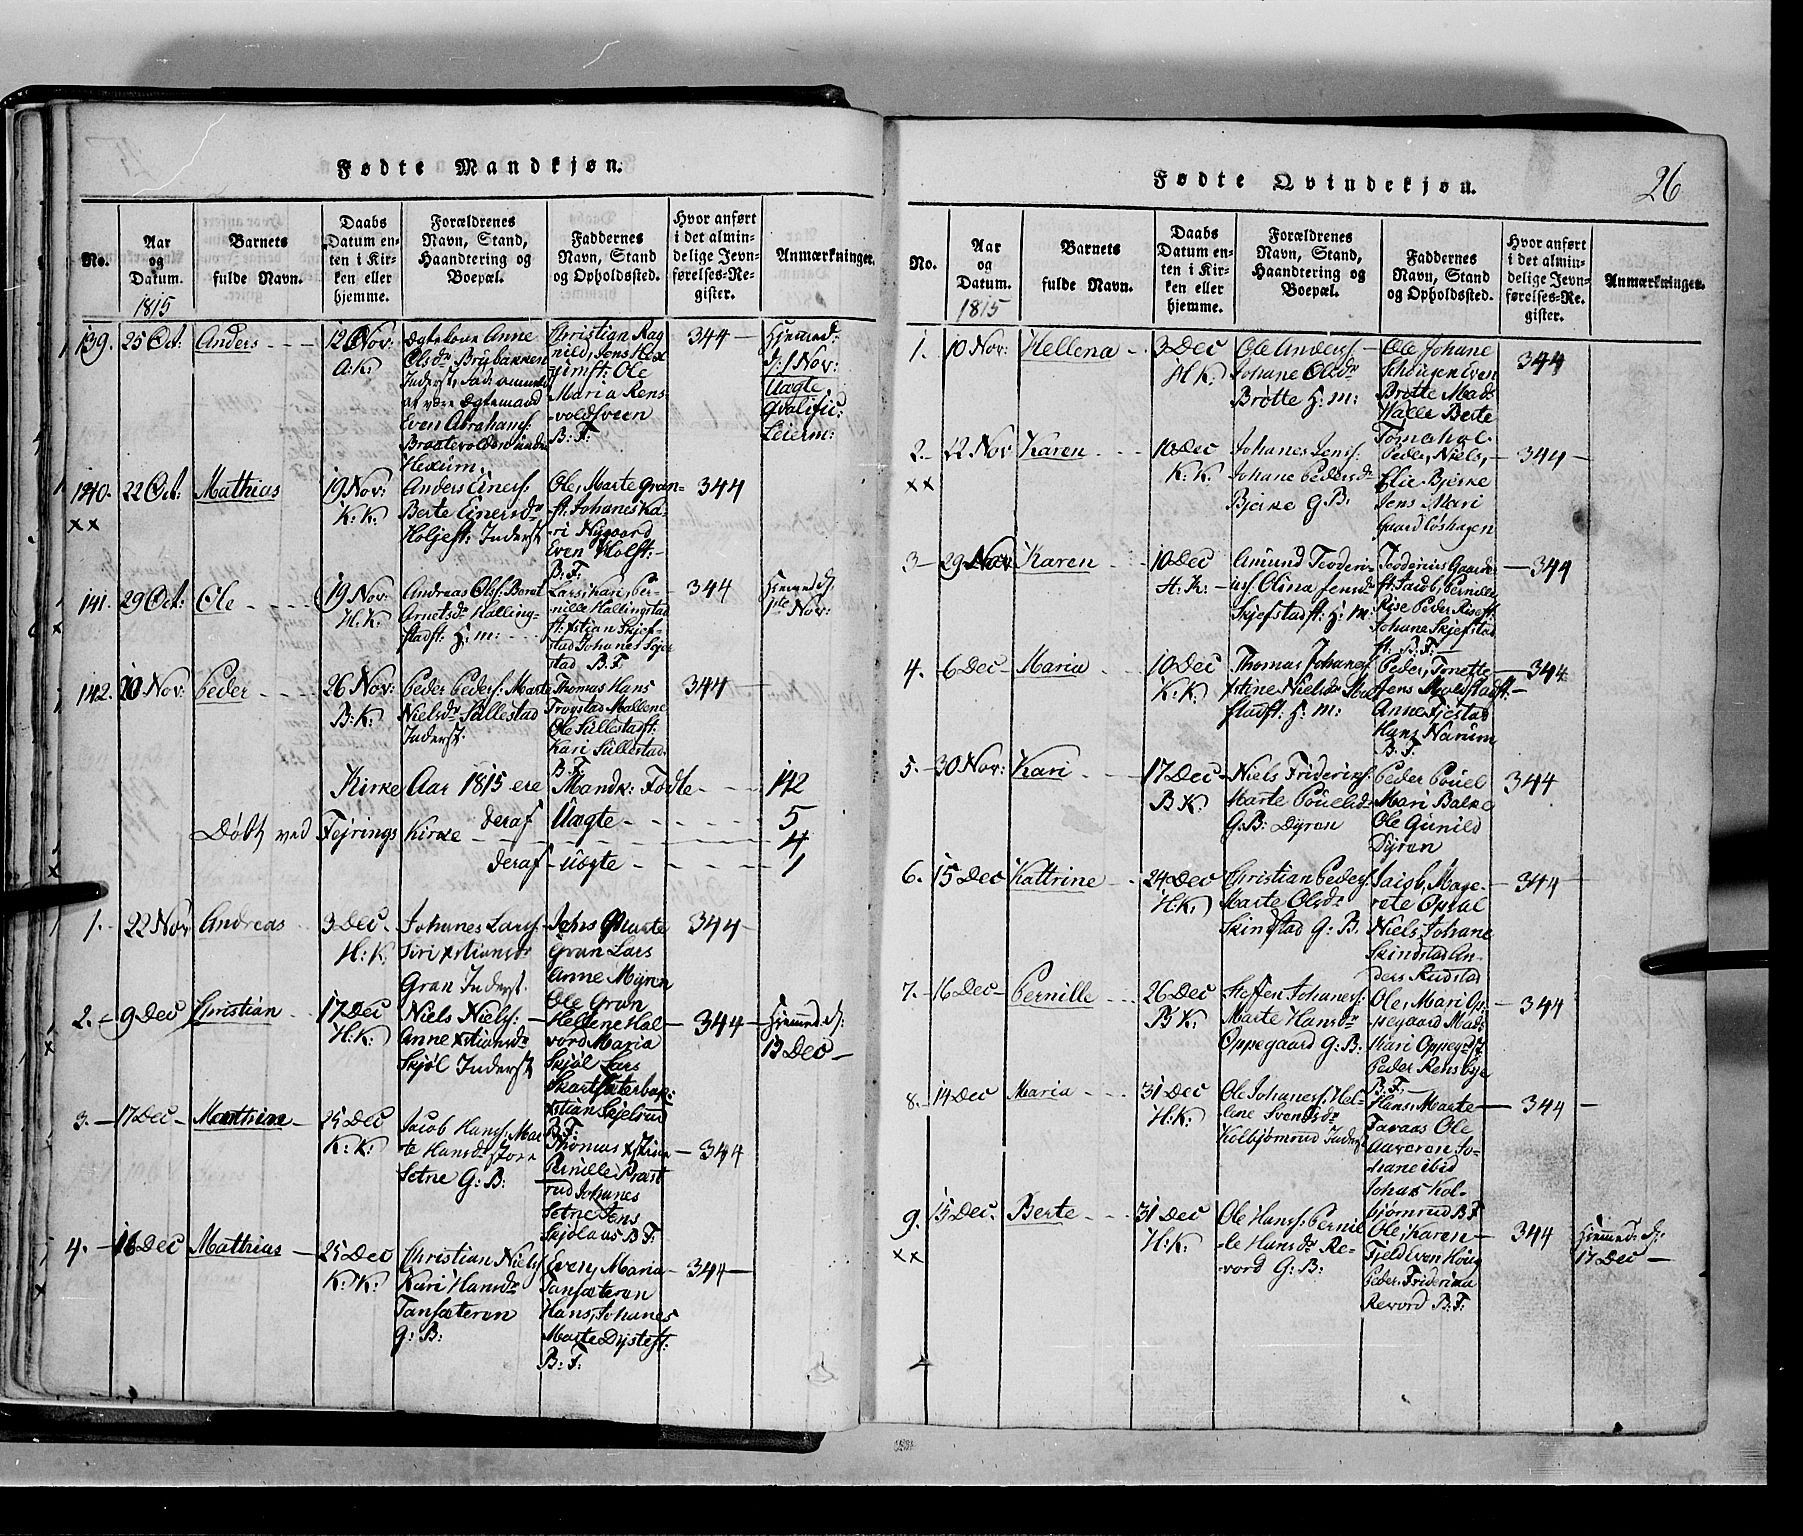 Fødte Mandkjøn.
No.
Aar
og
Datum.
1815
Barnets
fulde Navn.
Daabs
Datum en-
ten i Kir-
ken eller
hjemme.
Forældrenes
Navn, Stand,
Haandtering og
Boepæl.
Faddernes
Navn, Stand
og Opholdssted.
Hvor anført
i det almin-
delige Jevn-
førelses-Re-
gister.
Anmærkninger.
139.
25 Oct:
Anders
12 Nov:
A: K:
Ægtekone Anne
Olsdr Brybakken
Inderst,
at være Ægtemand
Even Abrahams:
Hexum.
Christian Rag
nild, Jens Hex
umst: Ole
Maria Rens
voldsveen
B: F:
344
Hjemmed:
d: 1 Nov:
Uægte
Qvalific:
Leierm:
140.
xx
22 Oct:
Mathias
19 Nov:
K: K:
Anders Einers:
Berte Einersdr
Holjest: Inderst
Ole, Marte Gran-
st: Johanes Ka-
ri Nygaard
Even Holst:
B: F:
344
141.
29 Oct:
Ole
19 Nov:
H: K:
Andreas Ols: Beret
Arnetsdr Halling-
stadst: H: M:
Lars, Kari, Per-
nille Hallingstad
st: xstian Skjef-
stad Johanes Sejer
stad B. F.
344
Hjemmed d:
1ste Nov:
142.
20 Nov:
Peder
26 Nov:
B: K:
Peder Peders: Marte
Nielsdr Sillestad
Inderst:
Thomas Hans
Frogstad Mallene
Ole Sillestadst:
Kari Sillestad
B. F.
344
Kirke Aar 1815 ere Mandk: Fødte 142
deraf Uægte 5
Døbt ved Fejrings Kirke 4
deraf uægte 1
1.
22 Nov
Andreas
3 Dec
H: K:
Johanes Lars:
Siri xstiansdr
Gran Inderst.
Johs Marte
Gran Lars
Anne Myren
Ole Gran
344
2.
9 Dec
Christian
17 Dec
H: K:
Niels Niels:
Anne xstiansdr
Skjøl Inderst
Hellene Hal
vord Maria
Skjøl Lars
xstian Sejelrud
B: F:
344
Hjemmed. d:
13 Dec
3.
17 Dec
25 Dec
K: K:
Jacob Hans: Mar
te Hansdr Store
Setne G: B:
Thomas xstian
Pernille Præst
rud Johanes
Setne Jens
Skjølaas B. F.
344
4.
16 Dec
Mathias
25 Dec
K: K:
Christian Niels:
Kari Hansdr
Tansæteren
G: B:
Even, Maria
Tansæteren
Hans, Johanes
Marte Dystest:
B: F:
344
Fødte Qvindekjøn.
26
No.
Aar
og
Datum.
1815
Barnets
fulde Navn.
Daabs
Datum en-
ten i Kir-
ken eller
hjemme.
Forældrenes
Navn, Stand,
Haandtering og
Boepæl.
Faddernes
Navn, Stand
og Opholdssted.
Hvor anført
i det almin-
delige Jevn-
førelses-Re-
gister.
Anmærkninger.
1.
10 Nov:
Hellena
3 Dec
H: K:
Ole Anders:
Johane Olsdr
Brøtte H: M:
Ole Johane
Even
Brøtte Mads
Halle Berte
344
2.
xx
22 Nov
Karen
10 Dec
K: K:
Johanes Jens:
Johane Pedersdr
Bjerke G: B:
Peder, Niels,
Elie Bjerke
Jens Mari
344
3
29 Nov
Karen
10 Dec
H: K:
Amund Teoderi-
us: Olina Jensdr
Skjefstadst: H: M:
Teoderius Gaard
st: Jacob, Pernille
Rise Peder Risest:
Johane Skjefstad
st: B: F:
344
4.
6 Dec
Maria
10 Dec
K: K:
Thomas Johanes:
xstine Nielsdr
stadst: H: M:
Peder, Tonette
Jens
Anne Fjestad
Hans Narum
B: F:
344
5.
30 Nov:
Kari
17 Dec
B: K:
Niels Friderics:
Marte Pouelsdr
G: B: Dyren
Peder Pouel
Mari Balke
Ole Gunild
Dyren
344
6.
15 Dec
Kattrine
24 Dec
H: K:
Christian Peders:
Marte Olsdr
Skindstad G: B:
Jacob, Mage-
rete Opsal
Niels Johane
Skindstad An-
ders Rudstad
344
7.
16 Dec
Pernille
26 Dec
B: K:
Steffen Johanes:
Marte Hansdr
Oppegaard G: B:
Ole, Mari Op-
pegaard Mad:
Kari Oppegdst:
Peder Rensbye
B: F:
344
8.
14 Dec
Maria
31 Dec
H: K:
Ole Johanes: Hel-
lene Svendsdr
Kolbjørnrud Inderst
Hans, Marte
Faraas Ole
Aaveren Jo-
hane ibid
Johans Kol-
bjørnrud B F
344
9.
xx
15 Dec.
Berte
31 Dec
H: K:
Ole Hans: Pernil
le Hansdr Re-
vord G: B:
Ole, Karen
Fjeld Even Houg
Peder, Friderica
Revord B: F:
344
Hjemmed: d:
17 Dec